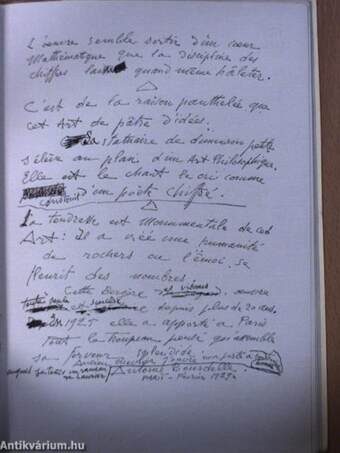 L'œuvre semble sortir d'un cœur
Mathématique que la discipline des
chiffres laisse quand même hâleter.
C'est de la raison panthelée que
cet Art de pâtre d'idées.
Sa statuaire de dimension petite
s'élève au plan d'un Art Philosophique.
Elle est le chant le cri comme
construit d'un poète chiffré.
La tendresse est Monumentale de cet
Art: Il a créé une humanité
de rochers où l'émoi se
fleurit des nombres.
Cette Bergère
toute seule et sincère depuis plus de 20 ans.
1925 elle a apporté à Paris
Tout le troupeau pensé qui assemble
sa ferveur splendide
Antoine Bourdelle
Paris - Février 1929
Antikvárium.hu